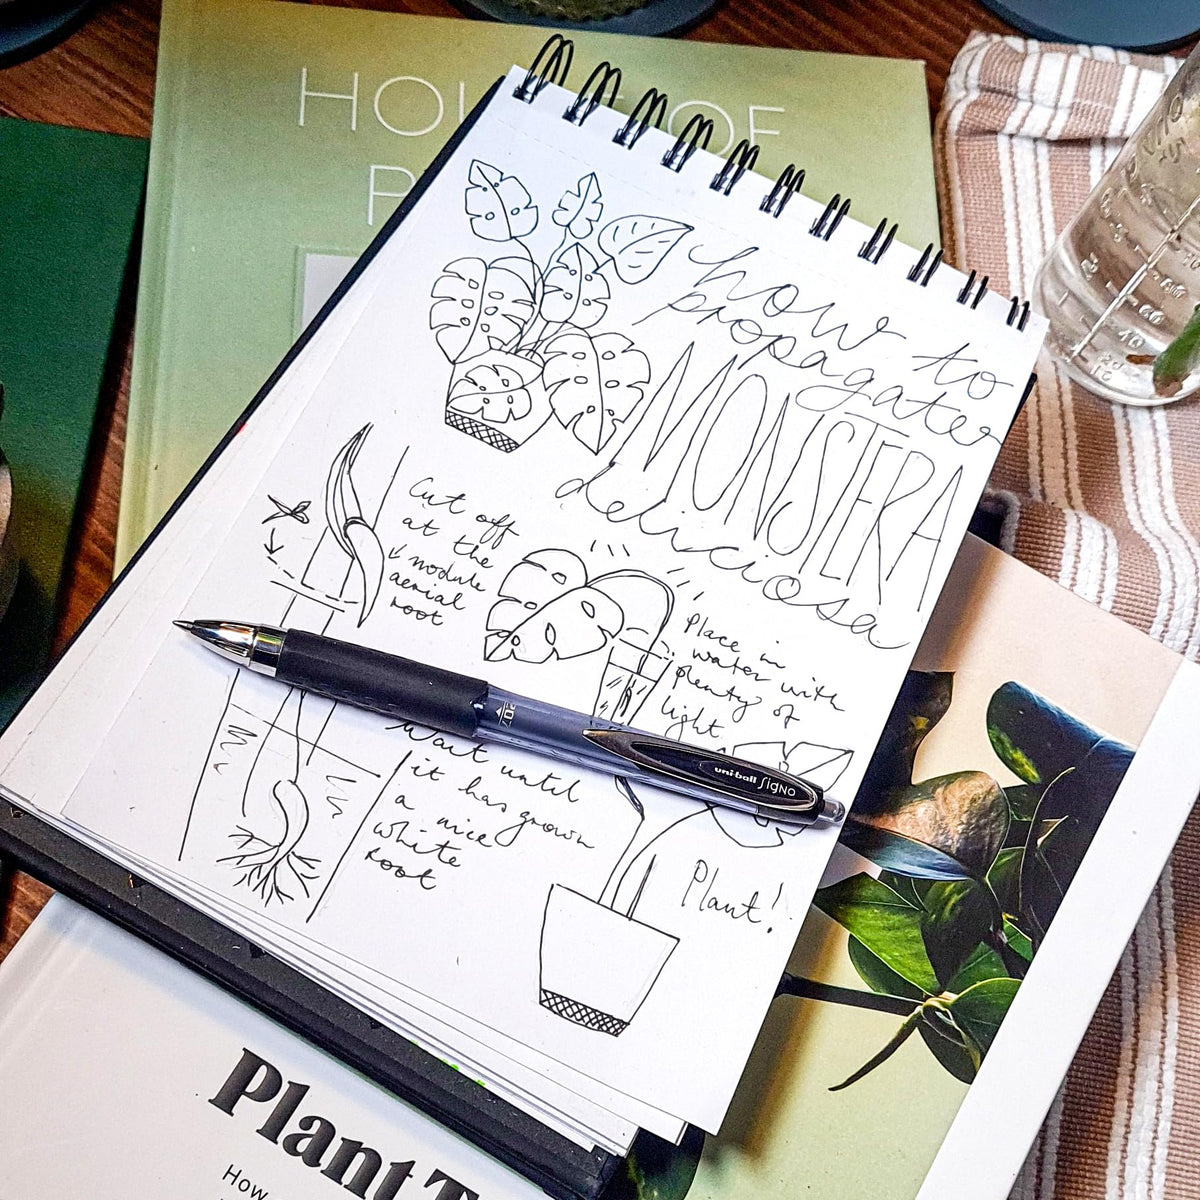 HOUSE OF
P
how to
propagate
MONSTERA
deliciosa
Cut off
at the
↓ module
aerial
root
Place in
water with
plenty of
light
Wait until
it has grown
a nice
white
root
Plant!
207
uni-ball SIGNO
Plant T
How